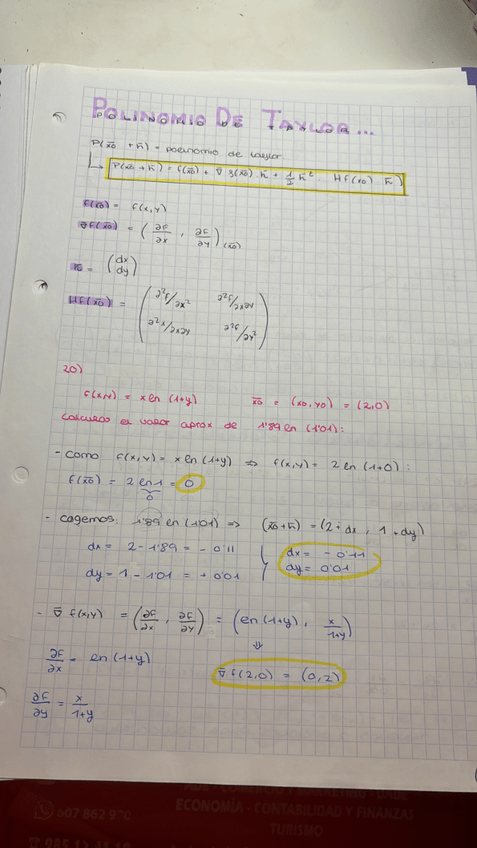 POLINOMIO DE TAYLOR...
P(x̄0 + h̄) = polinomio de taylor
↳ P(x̄0 + h̄) = f(x̄0) + ∇ f(x̄0) · h̄ + 1/2 h̄ᵗ Hf(x̄0) h̄
f(x̄0) = f(x,y)
∇f(x̄0) = (∂f/∂x , ∂f/∂y)(x̄0)
h̄ = (dx dy)
Hf(x̄0) = (∂²f/∂x² ∂²f/∂x∂y
∂²x/∂x∂y ∂²f/∂y²)
20)
f(x,y) = x ln (1+y) x̄0 = (x0, y0) = (2,0)
calculos el valor aprox de 1'89 ln (1'01):
- como f(x,y) = x ln (1+y) ⇒ f(x,y) = 2 ln (1+0) :
f(x̄0) = 2 ln 1 = 0
0
- cogemos: 1'89 ln (1'01) ⇒ (x̄0+h̄) = (2+dx, 1+dy)
dx = 2 - 1'89 = - 0'11 dx = - 0'11
dy = 1 - 1'01 = + 0'01 dy = 0'01
- ∇̄ f(x,y) = (∂f/∂x , ∂f/∂y) = (ln (1+y) , x/1+y)
⇓
∂f/∂x = ln (1+y) ∇̄ f(2,0) = (0,2)
∂f/∂y = x/1+y
607 862 9
ECONOMÍA · CONTABILIDAD Y FINANZAS
TURISMO